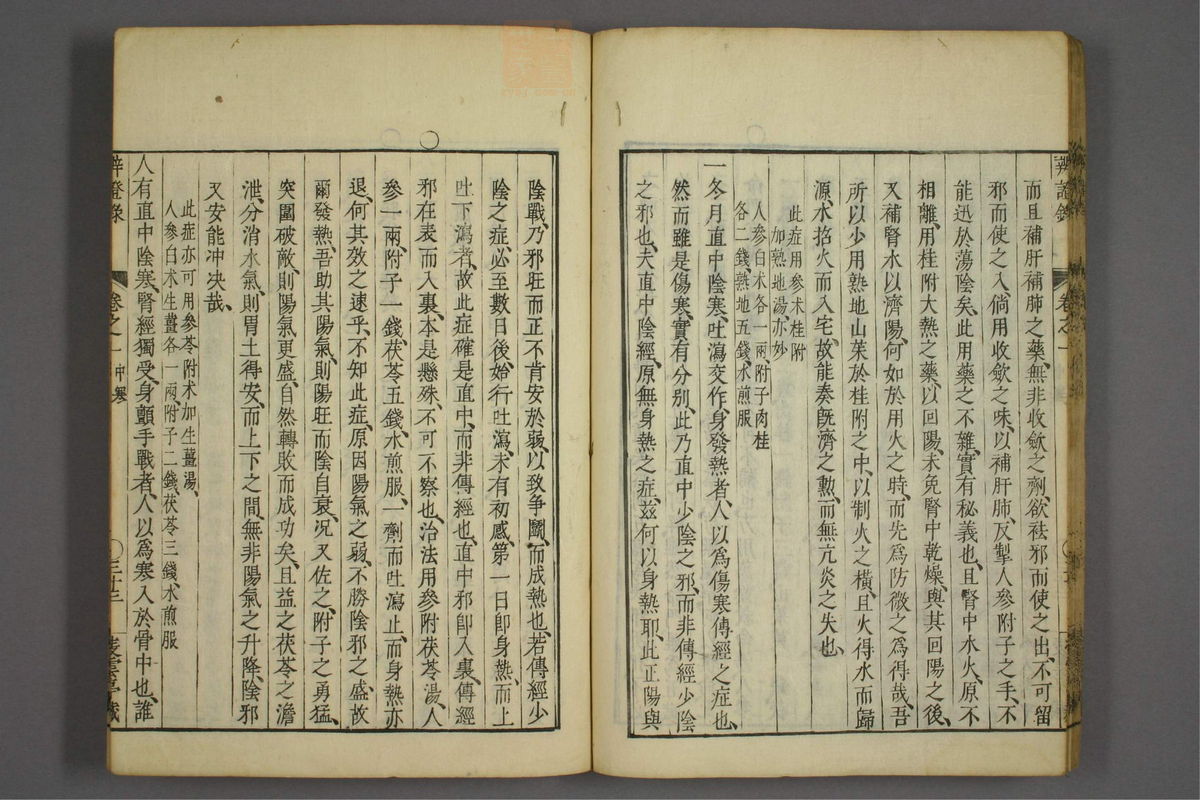 而且補肝補肺之藥無非收歛之劑、欲祛邪而使之出、不可留
邪而使之入、倘用收歛之味、以補肝肺、反掣人參附子之手、不
能迅於蕩陰矣、此用藥之不雜、實有秘義也、且腎中水火、原不
相離、用桂附大熱之藥、以回陽、未免腎中乾燥、與其回陽之後、
又補腎水以濟陽、何如於用火之時、而先為防微之為得哉、吾
所以少用熟地山茱於桂附之中、以制火之橫、且火得水而歸
源、水招火而入宅、故能奏旣濟之勲、而無亢炎之失也、
此症用參朮桂附
加熟地湯亦妙
人參白朮各一兩、附子肉桂
各二錢、熟地五錢、水煎服
一冬月直中陰寒、吐瀉交作、身發熱者、人以為傷寒傳經之症也、
然而雖是傷寒、實有分别、此乃直中少陰之邪、而非傳經少陰
之邪也、夫直中陰經、原無身熱之症、茲何以身熱耶、此正陽與
陰戰、乃邪旺而正不肯安於弱、以致爭鬭、而成熱也、若傳經少
陰之症、必至數日後、始行吐瀉、未有初感、第一日卽身熱、而上
吐下瀉者、故此症確是直中、而非傳經也、直中邪卽入裏、傳經
邪在表而入裏、本是懸殊、不可不察也、治法用參附茯苓湯、人
參一兩、附子一錢、茯苓五錢、水煎服、一劑而吐瀉止、而身熱亦
退、何其效之速乎、不知此症、原因陽氣之弱、不勝陰邪之盛、故
爾發熱、吾助其陽氣、則陽旺而陰自衰、况又佐之、附子之勇猛、
突圍破敵、則陽氣更盛、自然轉敗而成功矣、且益之茯苓之澹
泄、分消水氣、則胃土得安、而上下之間、無非陽氣之升降、陰邪
又安能冲决哉、
此症亦可用參苓附朮加生薑湯、
人參白朮生薑各一兩、附子二錢茯苓三錢、水煎服
人有直中陰寒、腎經獨受、身顫手戰者、人以為寒入於骨中也、誰
辛證錄 卷之一 中寒 三十三